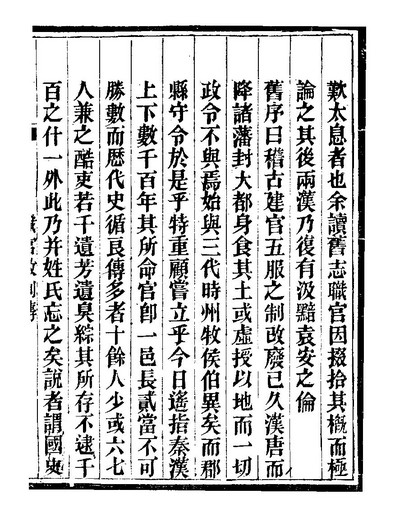 歎太息者也余讀舊志職官因掇拾其概而極
論之其後兩漢乃復有汲黯袁安之倫
舊序曰稽古建官五服之制改廢已久漢唐而
降諸藩封大都身食其土或虛授以地而一切
政令不與焉始與三代時州牧侯伯異矣而郡
縣守令於是乎特重顧嘗立乎今日遙指秦漢
上下數千百年其所命官卽一邑長貳當不可
勝數而歷代史循良傳多者十餘人少或六七
人兼之酷吏若干遺芳遺臭綜其所存不逮千
百之什一外此乃并姓氏忘之矣說者謂國史